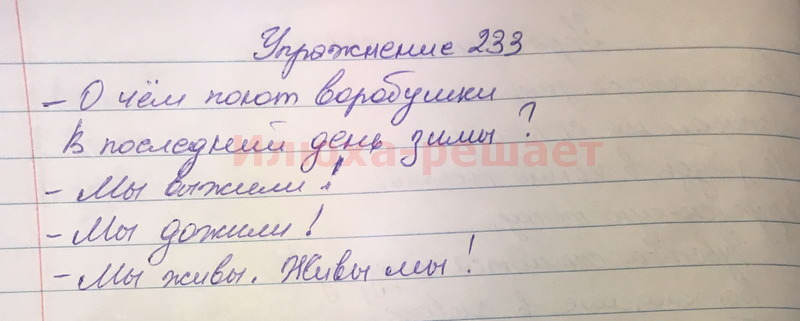 Упражнение 233
– О чём поют воробушки
В последний день зимы?
Илюха-решает
– Мы выжили!
– Мы дожили!
– Мы живы. Живы мы!